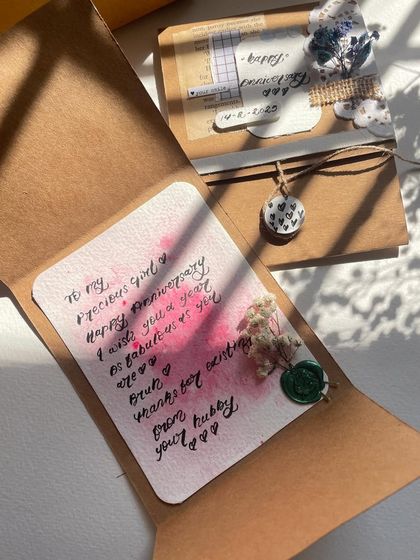 happy
anniversary
♡♡♡
14-2-2025
♥ your smile
To my
Precious Girl ♡
Happy Anniversary
I wish you a year
as fabulous as you
are ♡♡
Bruh ♡
thanks for existing
from
your hubby
♡♡♡